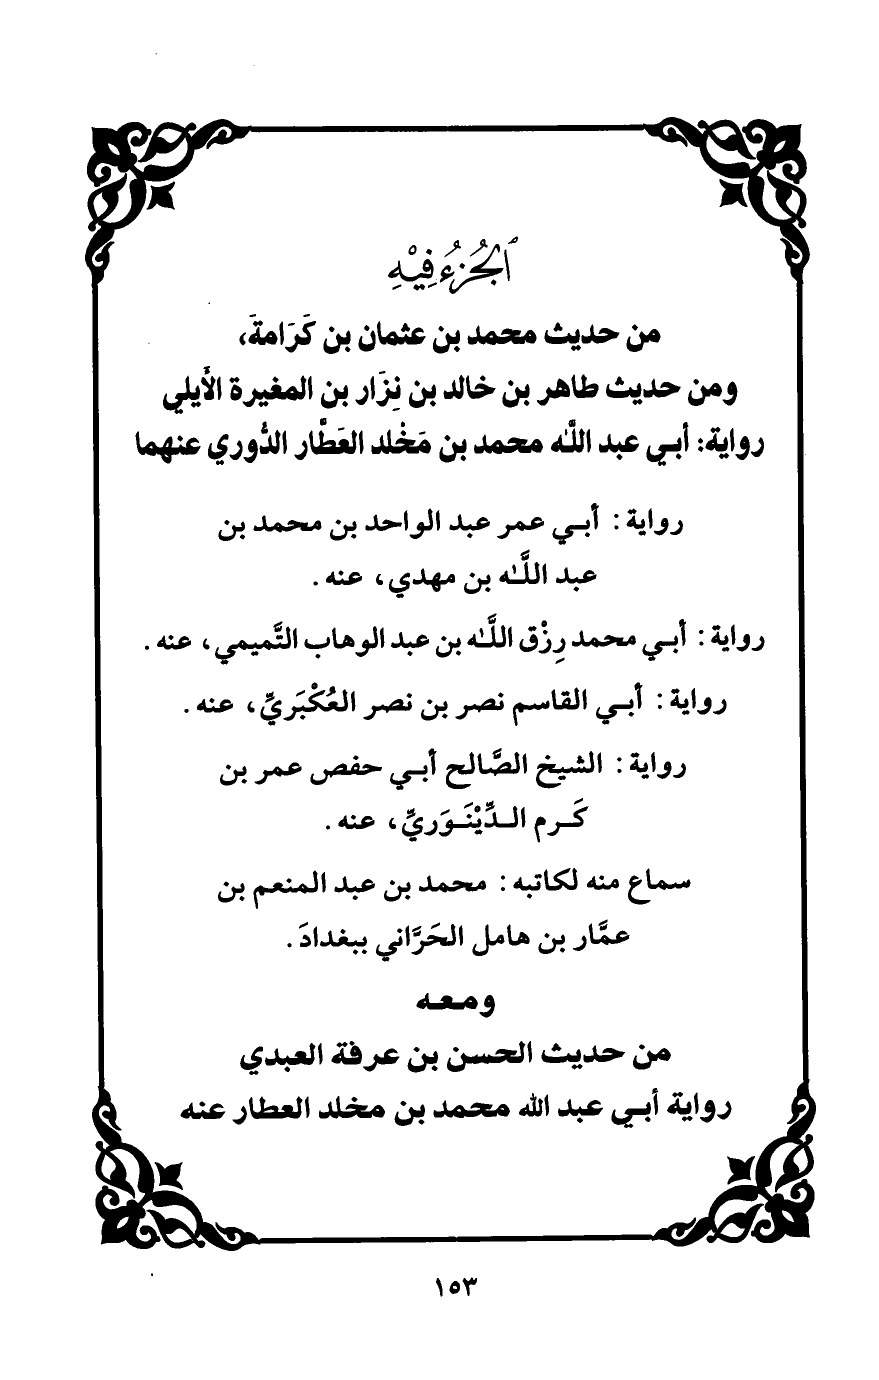 الجُزْءُ فِيْهِ
من حديث محمد بن عثمان بن كَرَامةَ،
ومن حديث طاهر بن خالد بن نِزَار بن المغيرة الأَيلي
رواية: أبي عبد اللَّه محمد بن مَخْلد العَطَّار الدُّوري عنهما
رواية: أبي عمر عبد الواحد بن محمد بن
عبد اللَّه بن مهدي، عنه.
رواية: أبي محمد رِزْق اللَّه بن عبد الوهاب التَّميمي، عنه.
رواية: أبي القاسم نصر بن نصر العُكْبَريِّ، عنه.
رواية: الشيخ الصَّالح أبي حفص عمر بن
كَرم الدِّيْنَوَريِّ، عنه.
سماع منه لكاتبه: محمد بن عبد المنعم بن
عمَّار بن هامل الحَرَّاني ببغدادَ.
ومعه
من حديث الحسن بن عرفة العبدي
رواية أبي عبد الله محمد بن مخلد العطار عنه
١٥٣